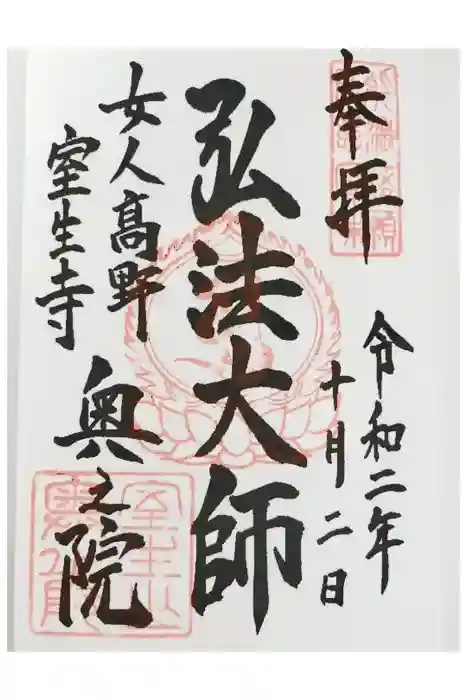 奉拝
令和二年
十月二日
弘法大師
女人高野
室生寺
奥之院